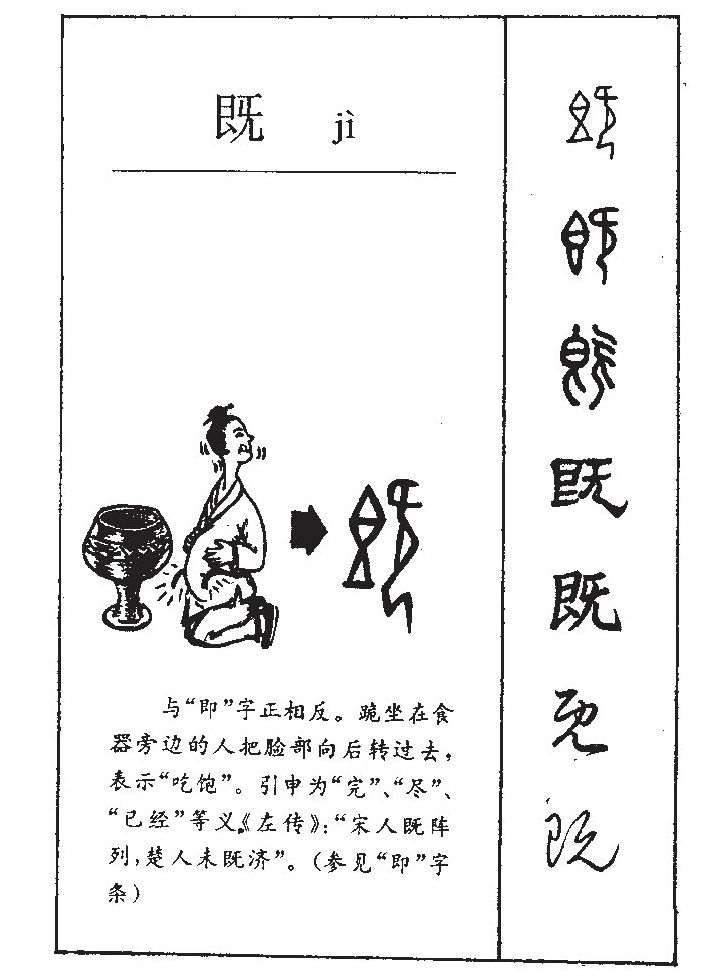 既 jì
与“即”字正相反。跪坐在食
器旁边的人把脸部向后转过去,
表示“吃饱”。引申为“完”、“尽”、
“已经”等义。《左传》:“宋人既阵
列,楚人未既济”。(参见“即”字
条)
既
既
既
既
既
既
既